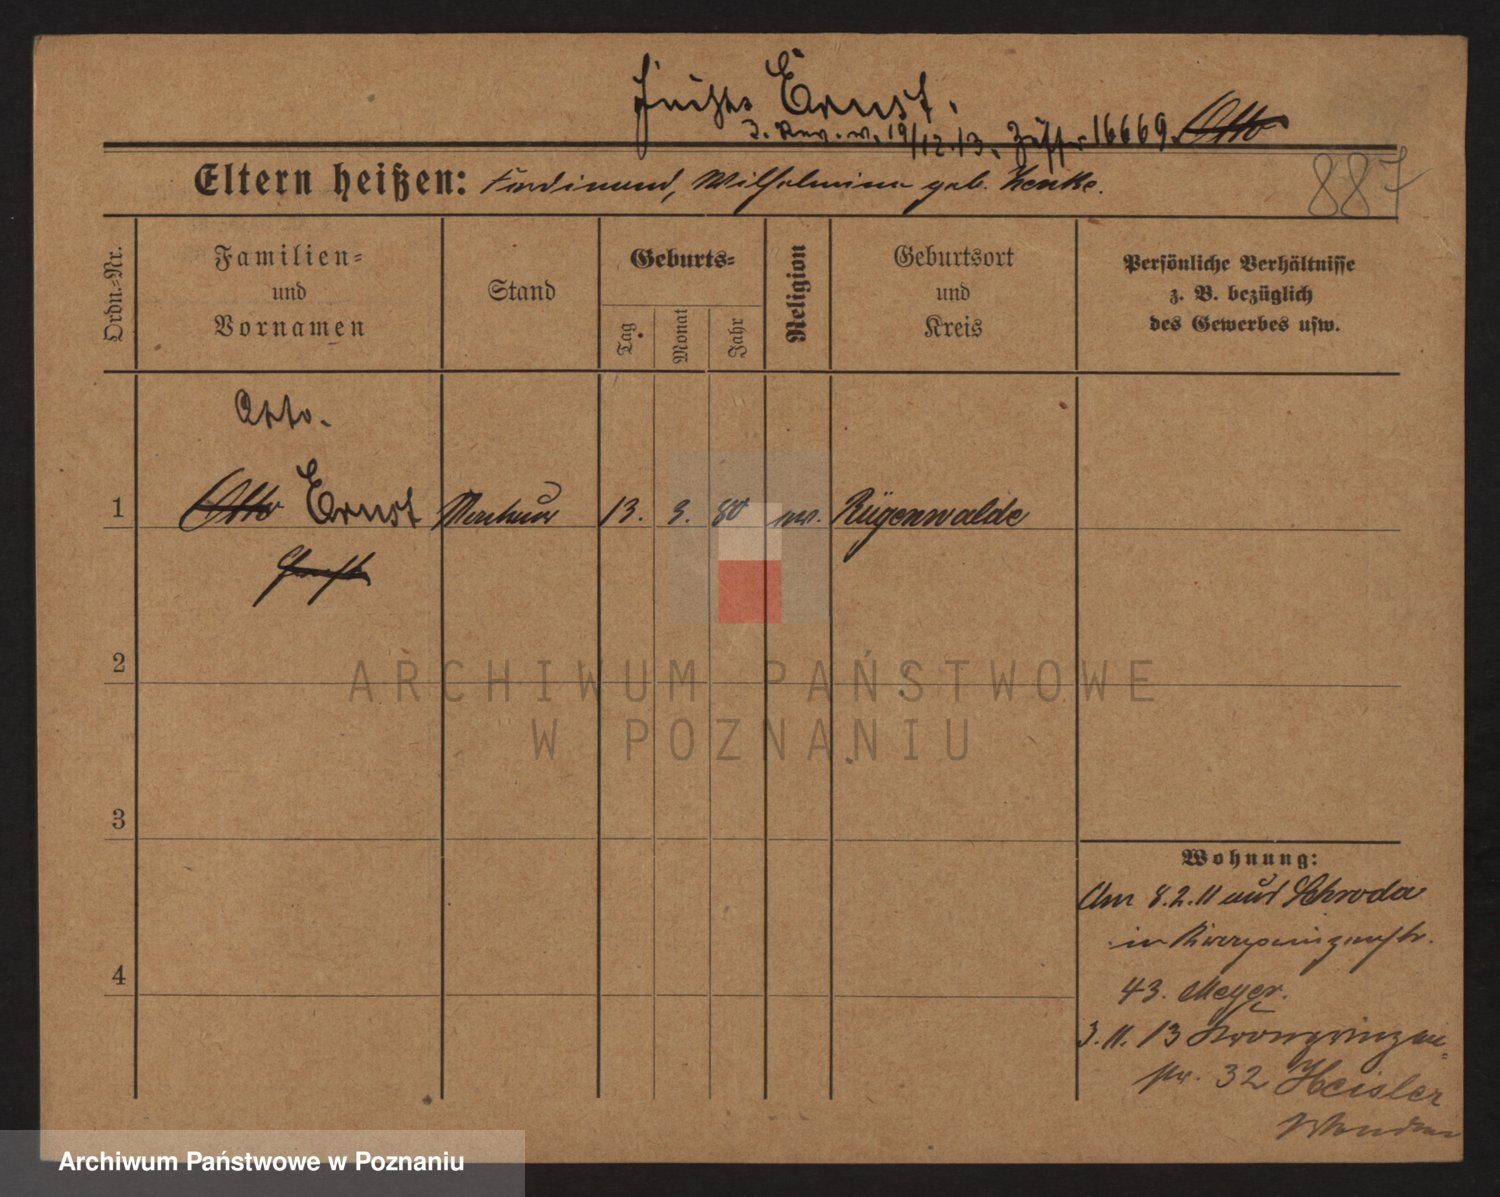 Ernst.
3. Rev. w. 19/12.13. Ziffer 16669. Otto
Eltern heißen: Ferdinand, Wilhelmine geb. Henke.
887
Ordn.=Nr.
Familien=
und
Vornamen
Stand
Geburts=
Tag
Monat
Jahr
Religion
Geburtsort
und
Kreis
Persönliche Verhältnisse
z. B. bezüglich
des Gewerbes usw.
Otto.
1 Otto Ernst 13. 3. 80 ev. Rügenwalde
2
ARCHIWUM PAŃSTWOWE
W POZNANIU
3
Wohnung:
Am 8.2.11 aus Schroda
in Kronprinzenstr.
4
43. Meyer.
3.11.13 Kronprinzen-
str. 32 Heisler
Archiwum Państwowe w Poznaniu